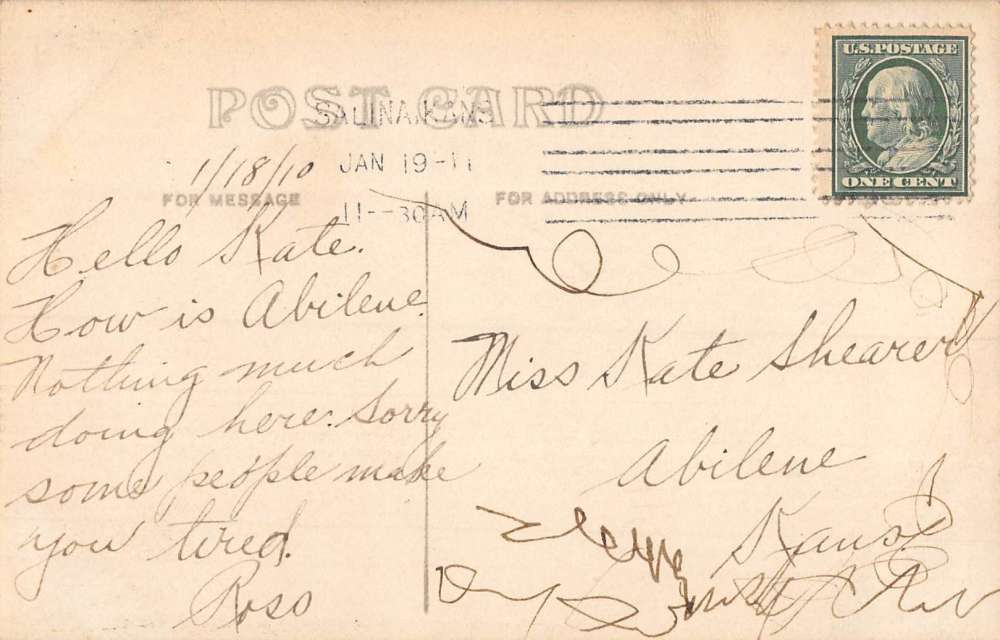 U.S. POSTAGE
ONE CENT
POST CARD
SALINA, KANS
JAN 19-11
11--30AM
1/18/10
FOR MESSAGE
FOR ADDRESS ONLY
Hello Kate.
How is Abilene.
Nothing much
doing here. Sorry
some people make
you tired.
Ross
Miss Kate Shearer
Abilene
Kans.